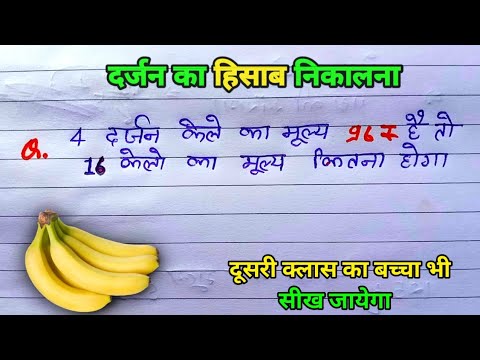 दर्जन का हिसाब निकालना
Q. 4 दर्जन केले का मूल्य 96₹ है तो
16 केलो का मूल्य कितना होगा
दूसरी क्लास का बच्चा भी
सीख जायेगा